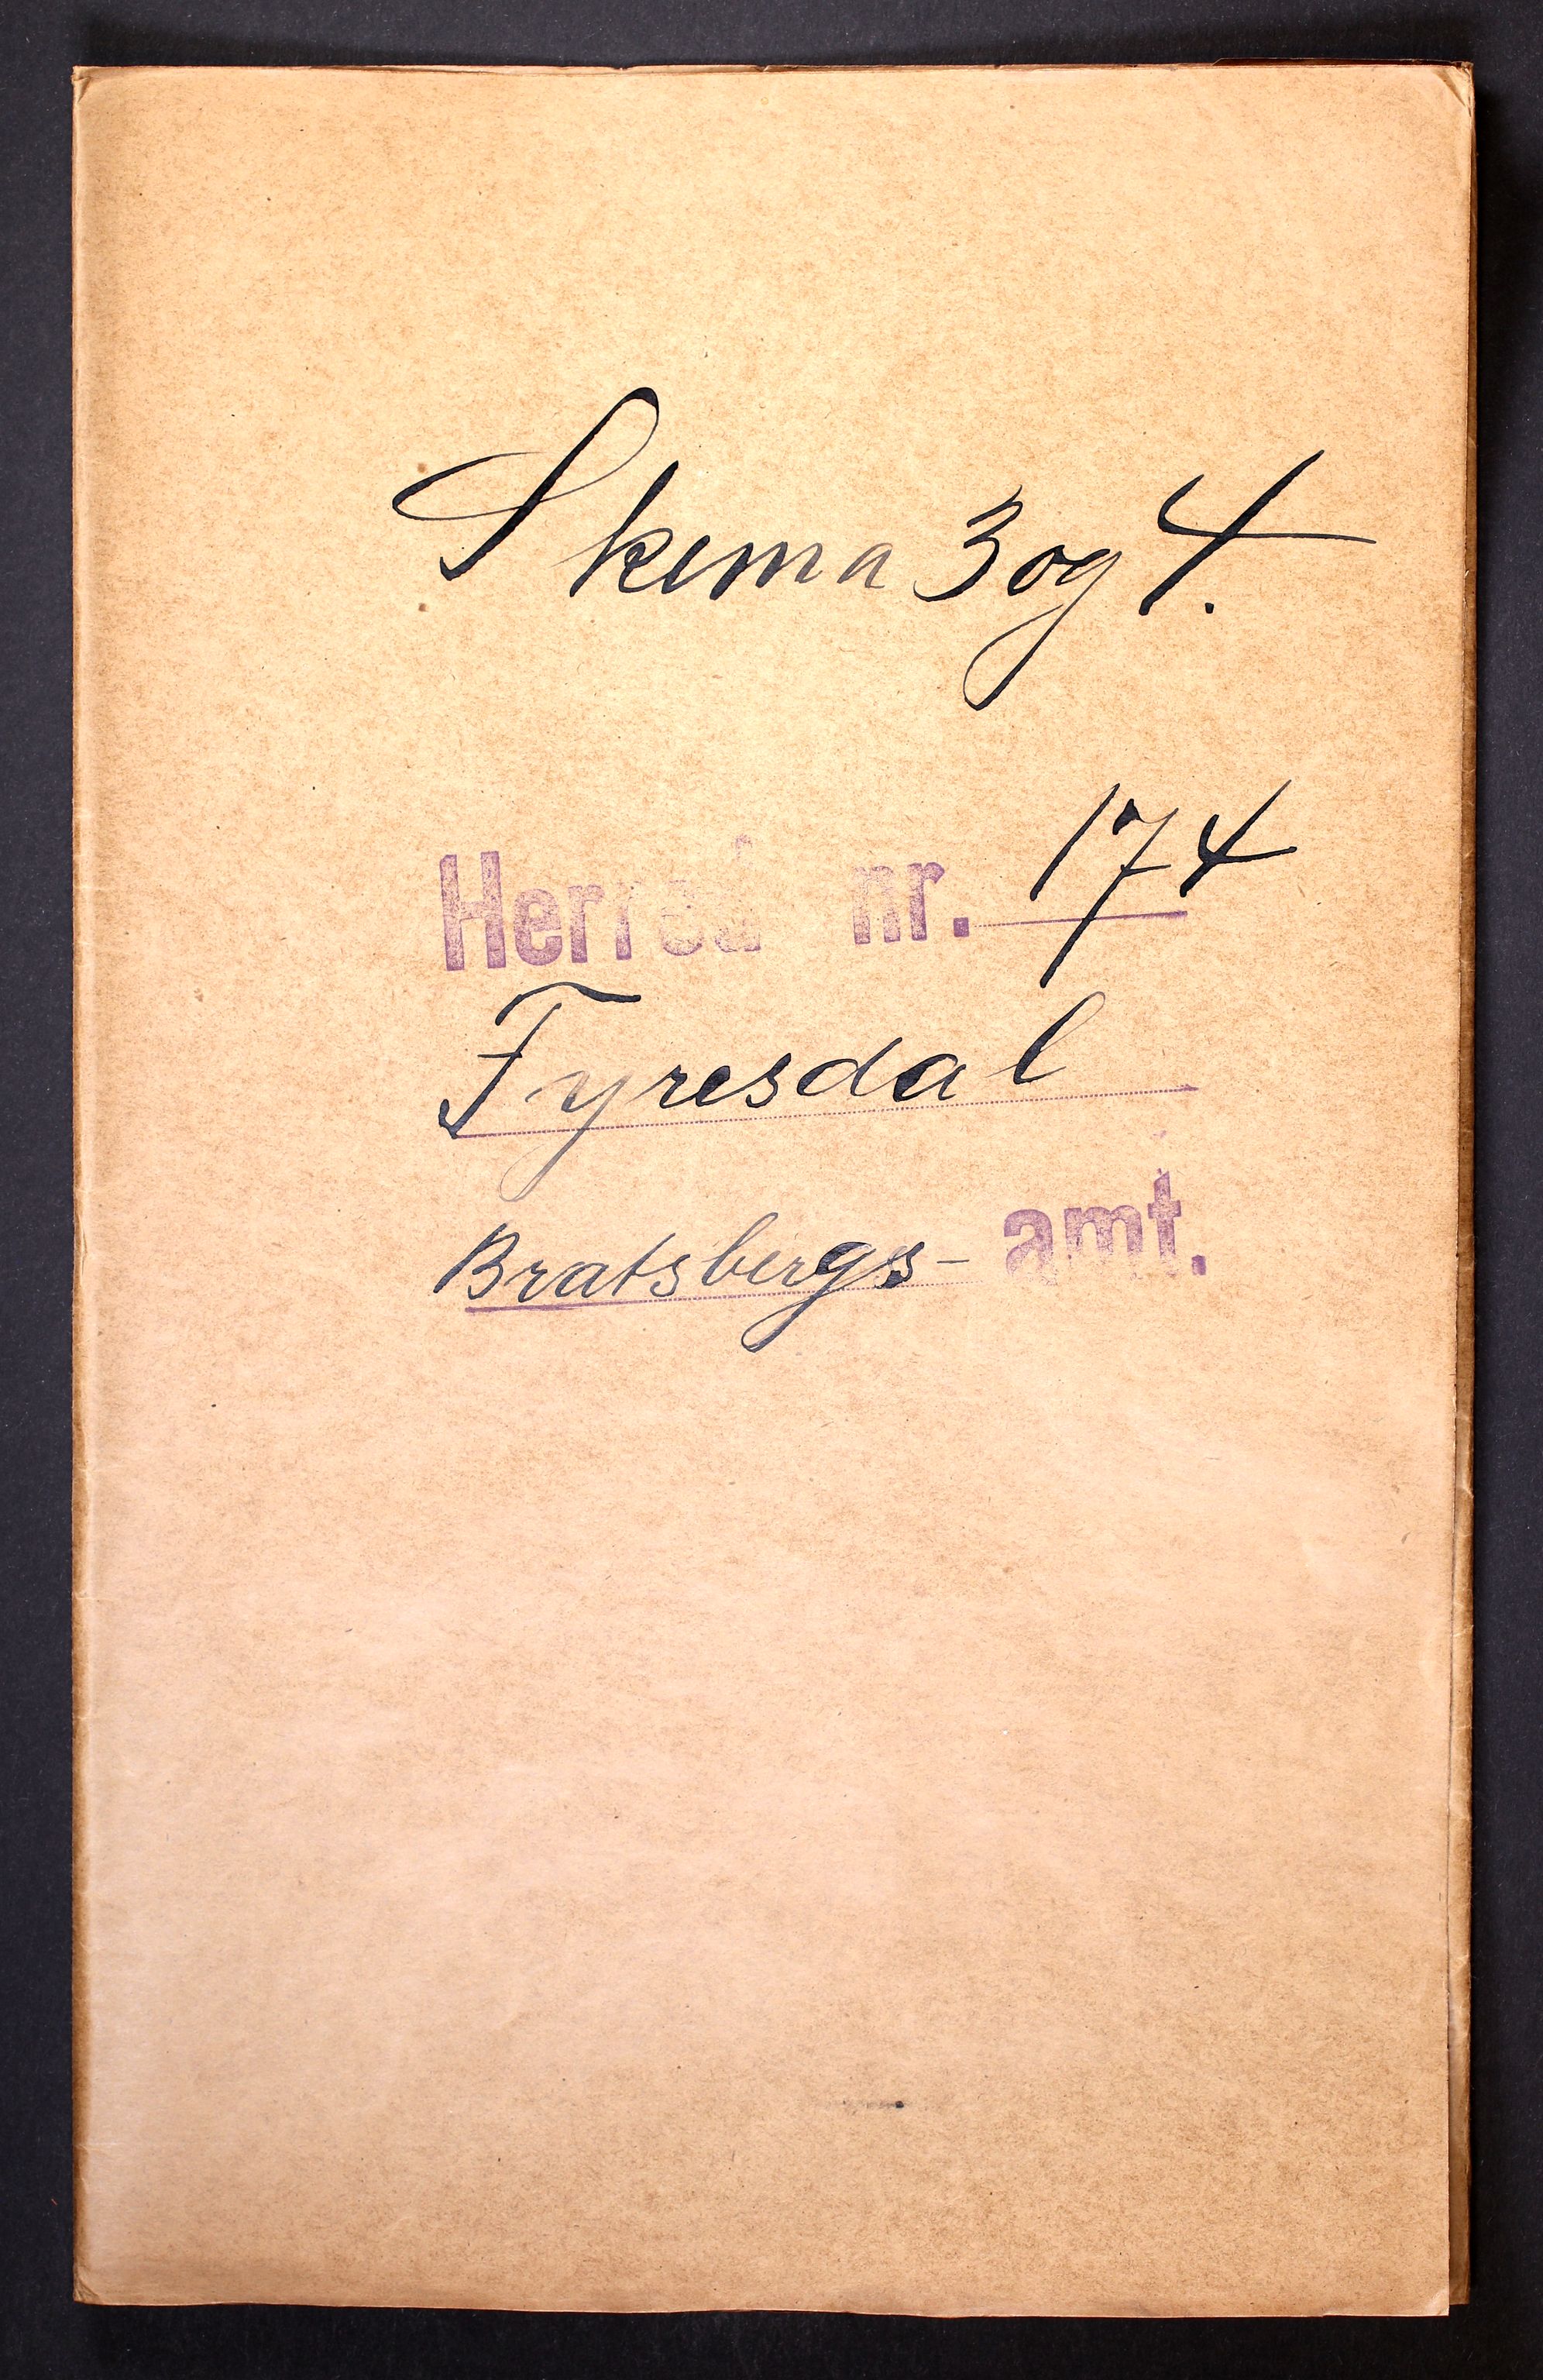 Skema 3 og 4.
Herred nr. 174
Fyresdal
Bratsbergs- amt.